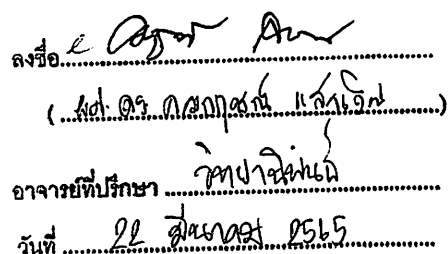 ลงชื่อ
( ผศ. ดร. คมกฤษณ์ แสงเงิน )
อาจารย์ที่ปรึกษา วิทยานิพนธ์
วันที่ 22 มีนาคม 2565